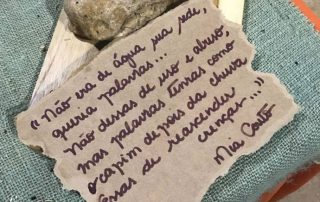 "Não era de água sua sede,
queria palavras...
não dessas de uso e abuso,
mas palavras tenras como
o capim depois da chuva
essas de reascender
crenças..."
Mia Couto